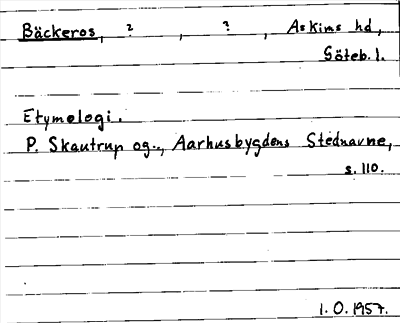 Bäckeros, ? , ? , Askims hd,
Göteb. l.
Etymologi.
P. Skautrup og.., Aarhusbygdens Stednavne,
s. 110.
I. O. 1957.